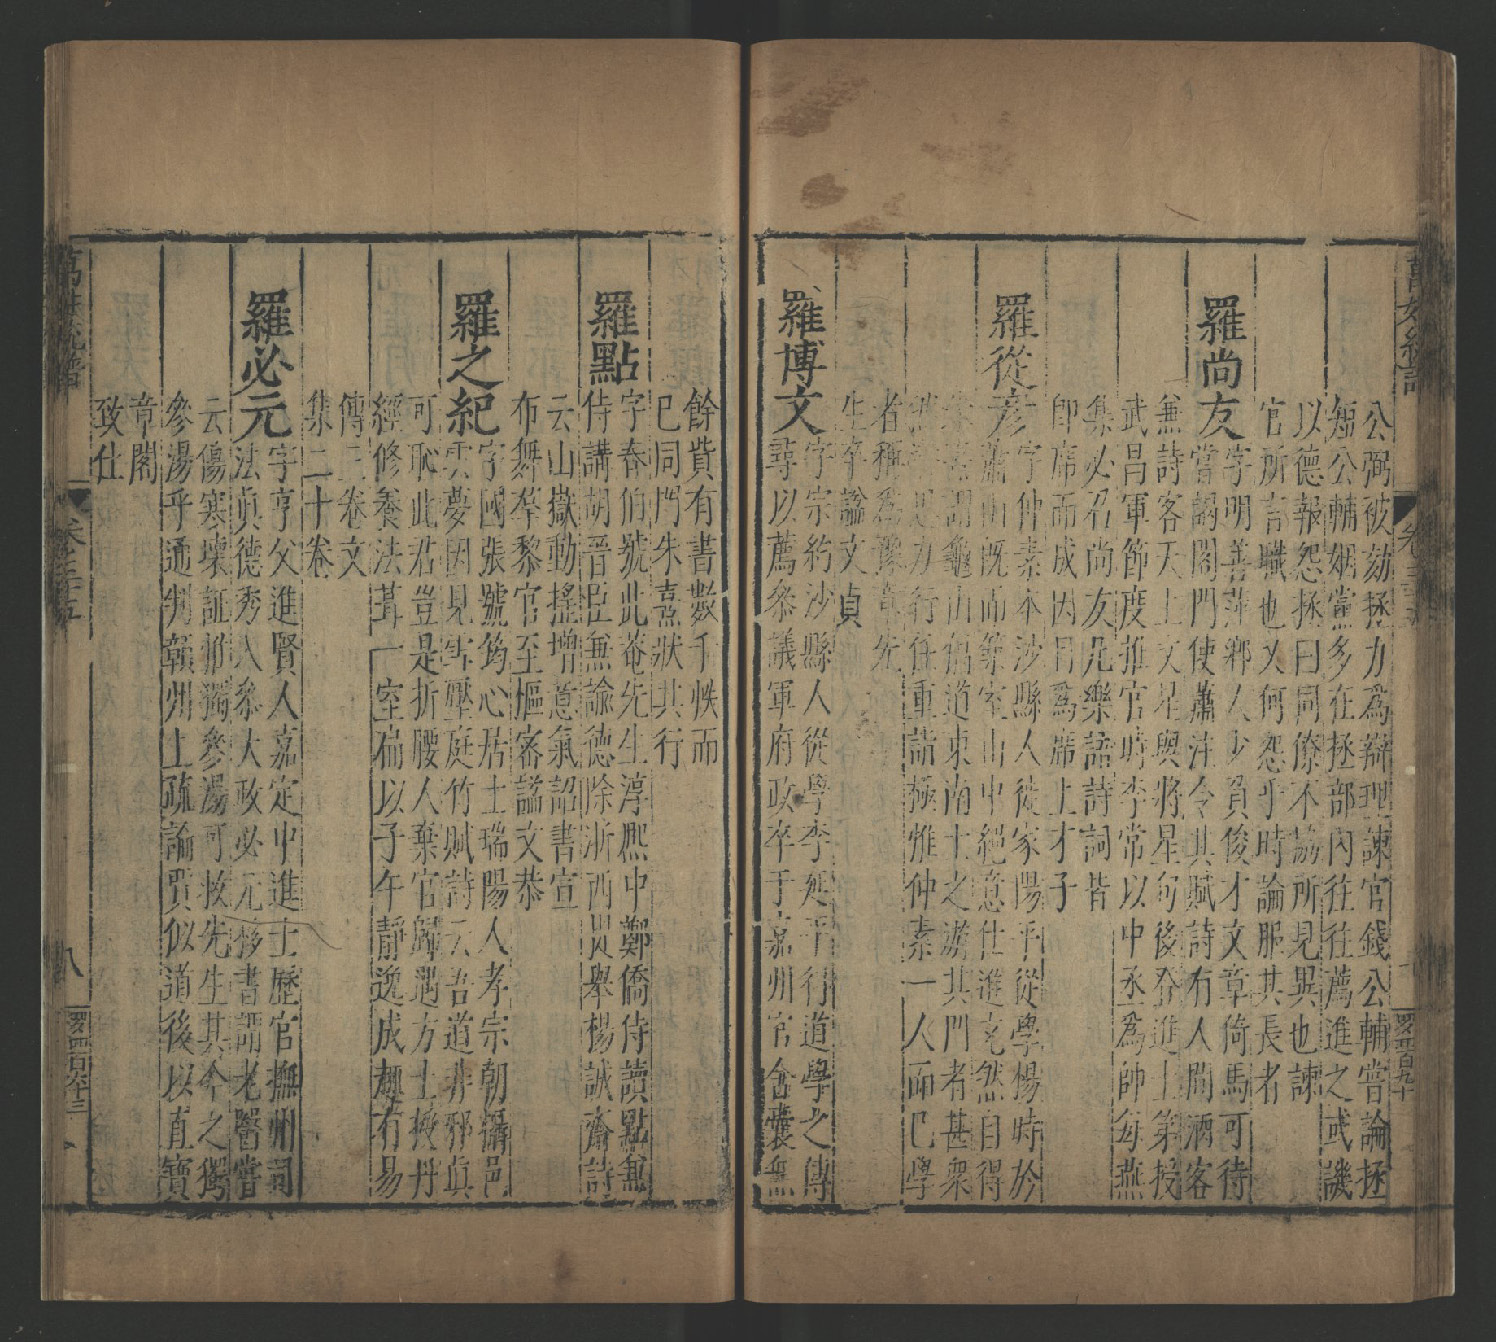 公弼被劾拯力爲辯理諫官錢公輔嘗論拯
短公輔姻黨多在拯部內往往薦進之或譏
以德報怨拯曰同僚不協所見異也諫
官所言職也又何怨乎時論服其長者
羅尚友字明善萍鄉人少負俊才文章倚馬可待
嘗謁閤門使蕭注令其賦詩有人間酒客
無詩客天上文星與將星句後登進士第授
武昌軍節度推官時李常以中丞爲帥每燕
集必召尚友凡樂語詩詞皆
即席而成因目爲席上才子
羅從彥字仲素本沙縣人徙家陽平從學楊時於
蕭山既而築室山中絕意仕進充然自得
龜山倡道東南士之游其門者甚衆
力行任重詣極惟仲素一人而已學
者稱爲豫章先
生卒諡文貞
羅博文字宗約沙縣人從學李延平得道學之傳
尋以薦叅議軍府政卒于嘉州官舍囊無
餘貲有書數千帙而
已同門朱熹狀其行
羅點字春伯號此菴先生淳熙中鄭僑侍讀點無
侍講胡晉臣無諭德除浙西畏舉楊誠齋詩
云山嶽動搖增意氣詔書宣
布舞羣黎官至樞密諡文恭
羅之紀字國張號筠心居士瑞陽人孝宗朝攝邑
雲夢因見雪壓庭竹賦詩云吾道非邪眞
可恥此君豈是折腰人棄官歸遇方士授丹
經修養法葺一室扁以子午靜逸成趣有易
傳三卷文
集二十卷
羅必元字亨父進賢人嘉定中進士歷官撫州司
法眞德秀入叅大政必元移書謂老醫嘗
云傷寒壞証惟獨參湯可救先生其今之獨
參湯乎通判贛州上疏論賈似道後以直寶
章閣
致仕
萬姓統譜
卷之三十五
八